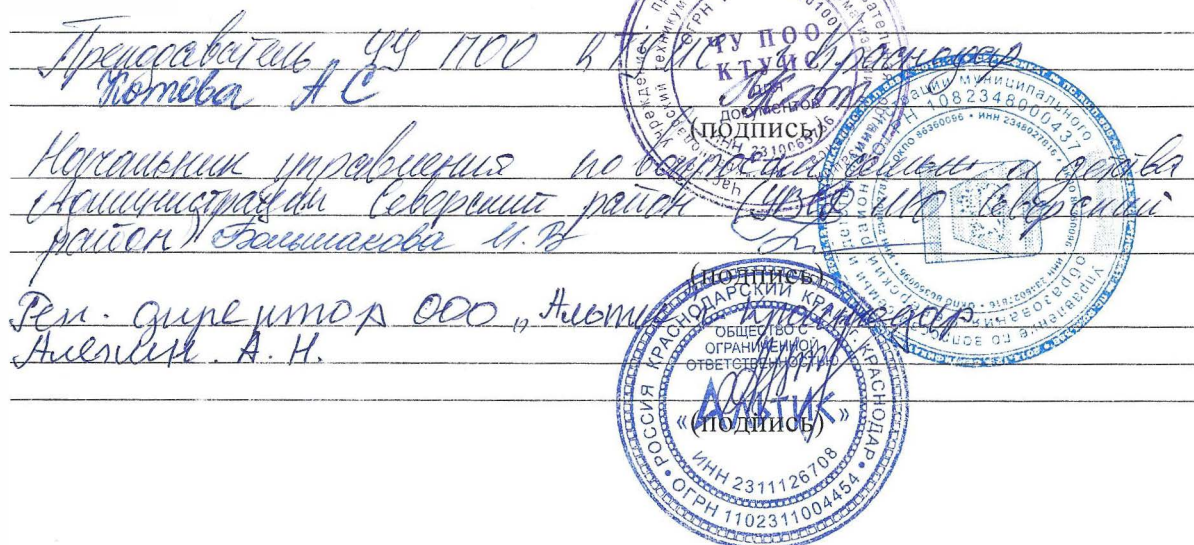 Преподаватель ЧУ ПОО КТУИС г. Краснодар
Котова А С
(подпись)
Начальник управления по вопросам семьи и детства
Администрации Северский район (УВСД МО Северский
район) Большакова И. В
(подпись)
Ген. директор ООО „Альтик г. Краснодар
Алехин. А. Н.
(подпись)
ЧУ ПОО
КТУИС
Для
документов
ОГРН 1082348000437
ОКПО 86360096 • ИНН 2348027816
РОССИЯ КРАСНОДАРСКИЙ КРАЙ Г. КРАСНОДАР
ОБЩЕСТВО С
ОГРАНИЧЕННОЙ
ОТВЕТСТВЕННОСТЬЮ
«Альтик»
ИНН 2311126708
ОГРН 1102311004454